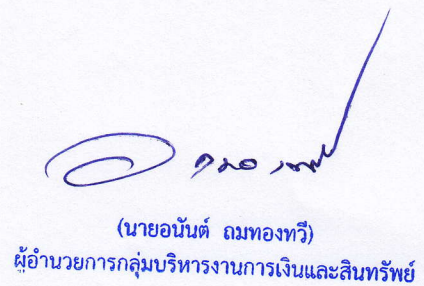 (นายอนันต์ ถมทองทวี)
ผู้อำนวยการกลุ่มบริหารงานการเงินและสินทรัพย์